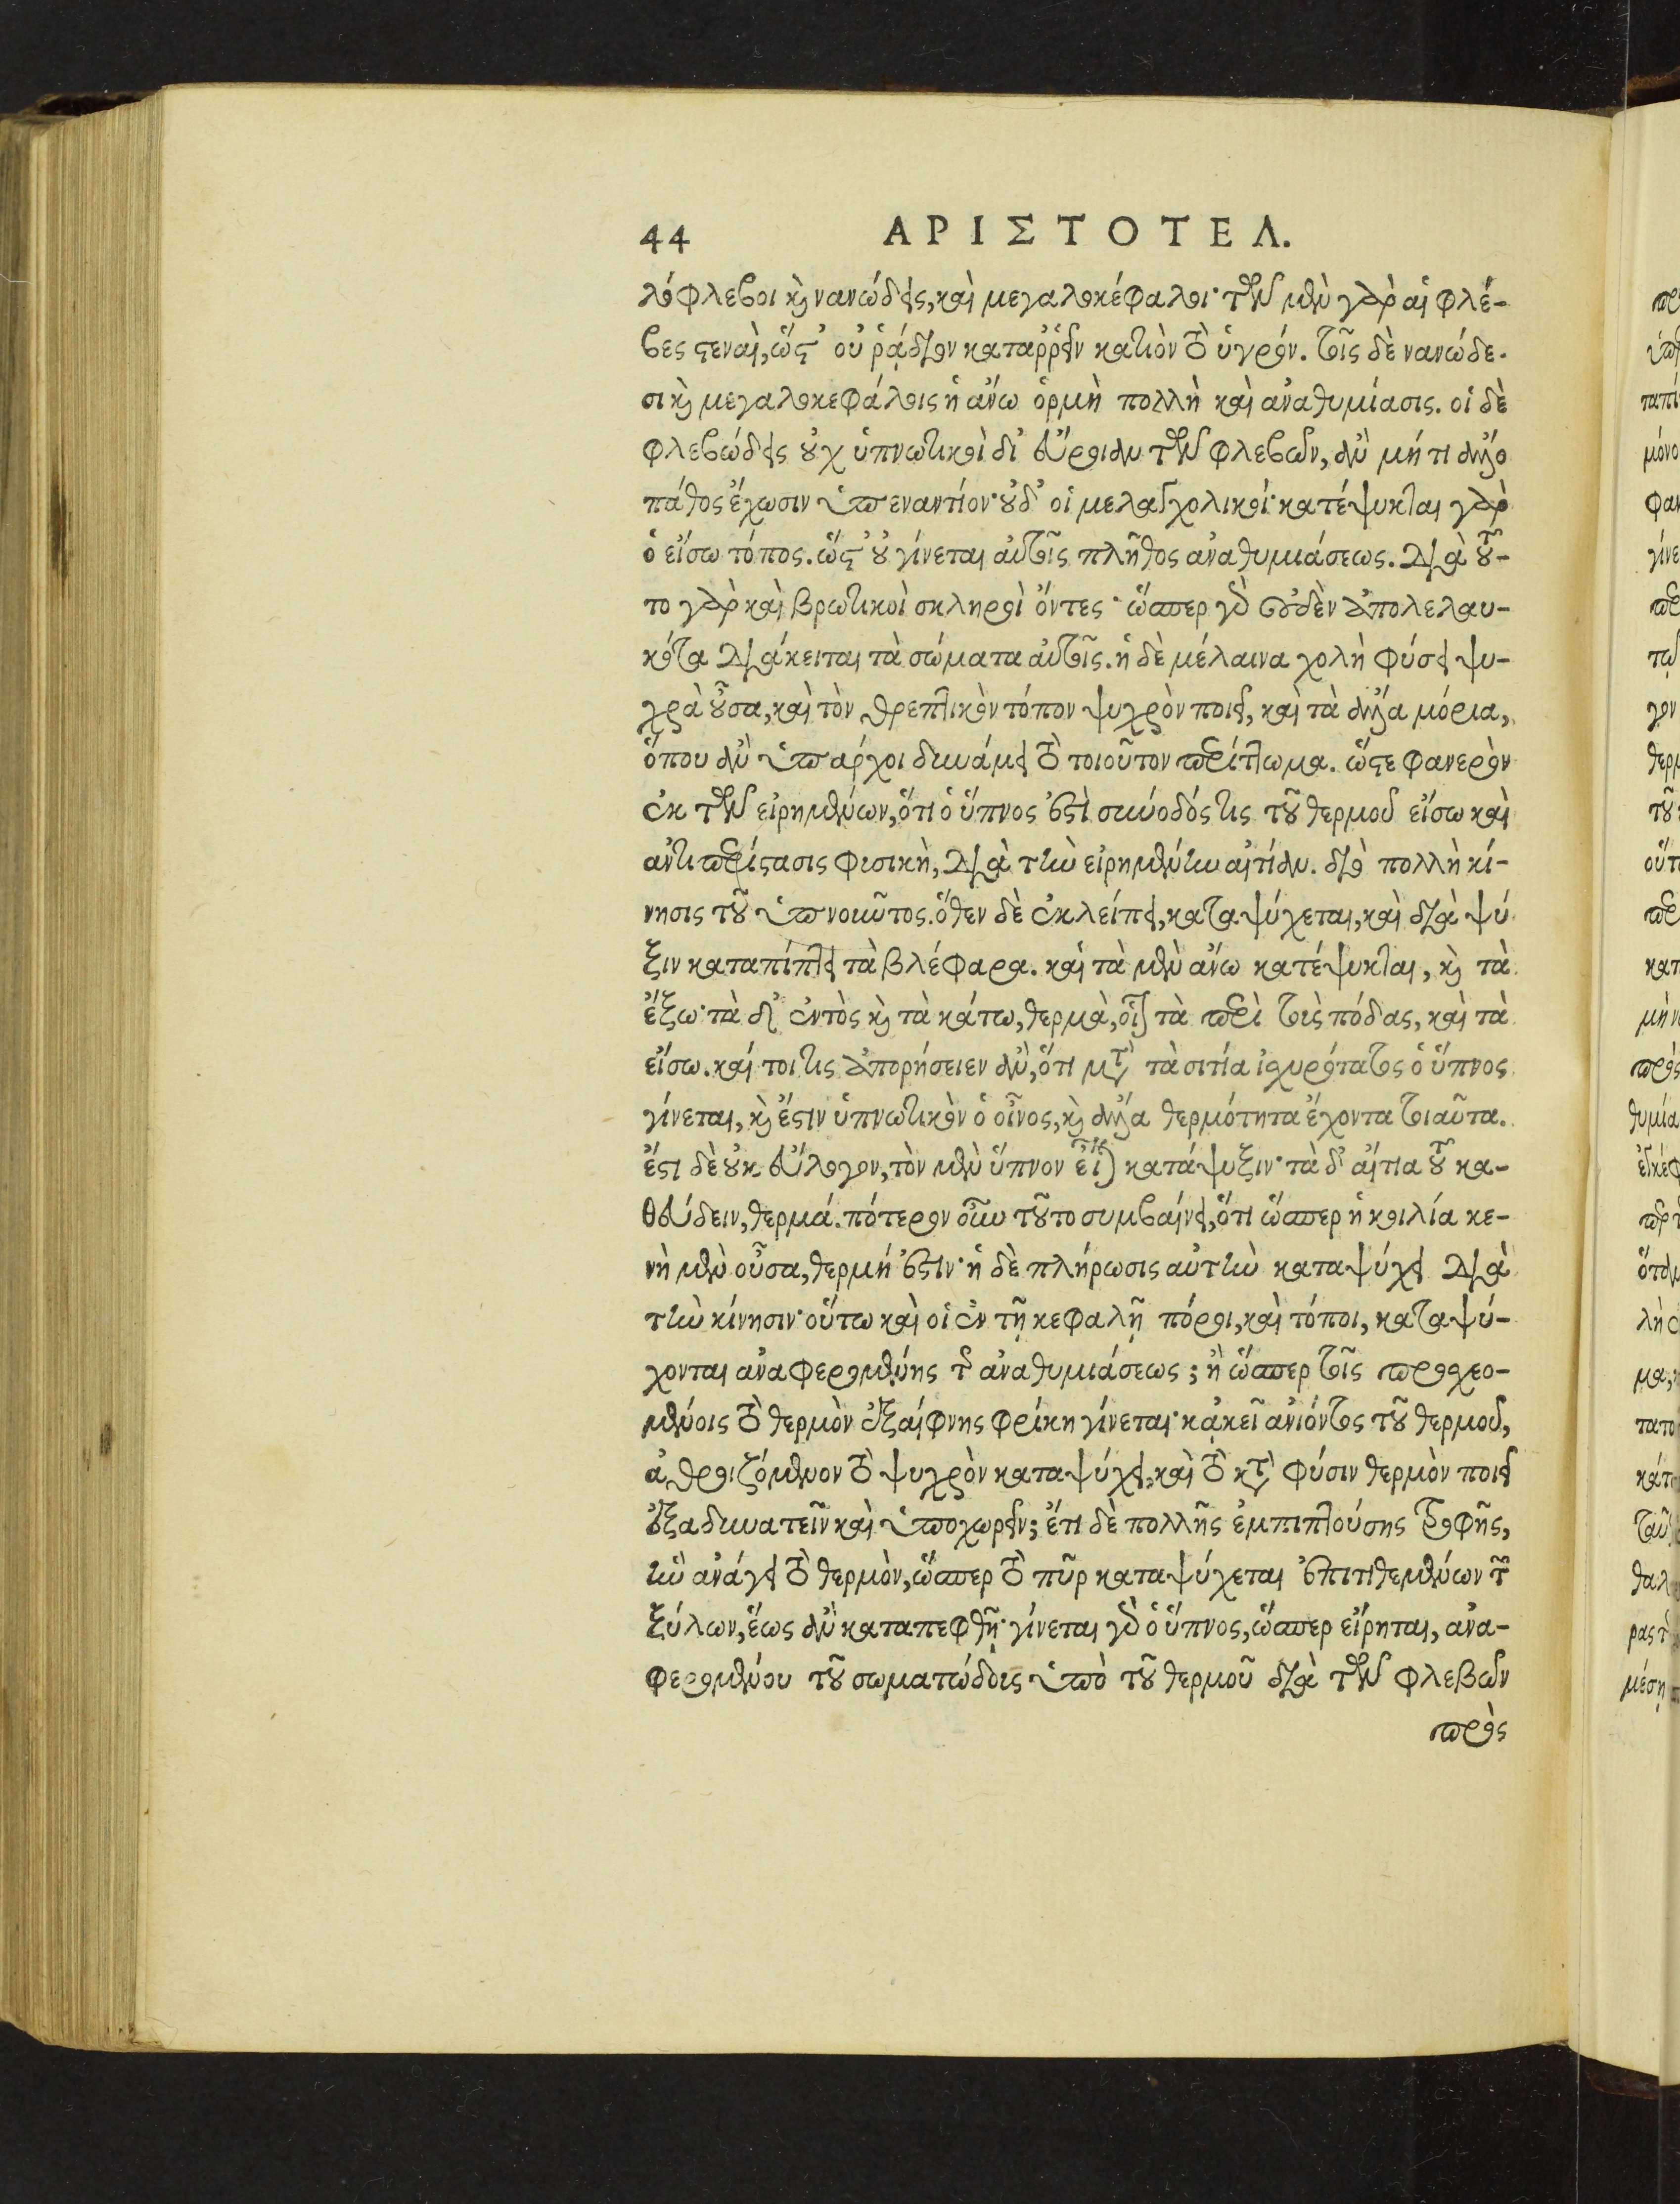 44 ΑΡΙΣΤΟΤΕΛ.
λόφλεβοι καὶ νανώδεις, καὶ μεγαλοκέφαλοι· τῶν μὲν γὰρ αἱ φλέ-
βες στεναὶ, ὥστ' οὐ ῥᾴδιον καταῤῥεῖν κατιὸν τὸ ὑγρόν. τοῖς δὲ νανώδε-
σι καὶ μεγαλοκεφάλοις ἡ ἄνω ὁρμὴ πολλὴ καὶ ἀναθυμίασις. οἱ δὲ
φλεβώδεις οὐχ ὑπνωτικοὶ δι' εὔροιαν τῶν φλεβῶν, ἂν μή τι ἄλλο
πάθος ἔχωσιν ὑπεναντίον· οὐδ' οἱ μελαγχολικοί· κατέψυκται γὰρ
ὁ εἴσω τόπος. ὥστ' οὐ γίνεται αὐτοῖς πλῆθος ἀναθυμιάσεως. διὰ τοῦ-
το γὰρ καὶ βρωτικοὶ σκληροὶ ὄντες· ὥσπερ γὰρ οὐδὲν ἀπολελαυ-
κότα διάκειται τὰ σώματα αὐτοῖς. ἡ δὲ μέλαινα χολὴ φύσει ψυ-
χρὰ οὖσα, καὶ τὸν θρεπτικὸν τόπον ψυχρὸν ποιεῖ, καὶ τὰ ἄλλα μόρια,
ὅπου ἂν ὑπάρχοι δυνάμει τὸ τοιοῦτον περίττωμα. ὥστε φανερὸν
ἐκ τῶν εἰρημένων, ὅτι ὁ ὕπνος ἐστὶ σύνοδός τις τοῦ θερμοῦ εἴσω καὶ
ἀντιπερίστασις φισικὴ, διὰ τὴν εἰρημένην αἰτίαν. διὸ πολλὴ κί-
νησις τοῦ ὑπνοῦντος. ὅθεν δὲ ἐκλείπει, καταψύχεται, καὶ διὰ ψύ
ξιν καταπίπτει τὰ βλέφαρα. καὶ τὰ μὲν ἄνω κατέψυκται, καὶ τὰ
ἔξω· τὰ δ' ἐντὸς καὶ τὰ κάτω, θερμὰ, οἷον τὰ περὶ τοὺς πόδας, καὶ τὰ
εἴσω. καί τοι τις ἀπορήσειεν ἂν, ὅτι μετὰ τὰ σιτία ἰσχυρότατος ὁ ὕπνος
γίνεται, καὶ ἔστιν ὑπνωτικὸν ὁ οἶνος, καὶ ἄλλα θερμότητα ἔχοντα τοιαῦτα.
ἔστι δὲ οὐκ εὔλογον, τὸν μὲν ὕπνον εἶναι κατάψυξιν· τὰ δ' αἴτια τοῦ κα-
θεύδειν, θερμά. πότερον οὖν τοῦτο συμβαίνει, ὅτι ὥσπερ ἡ κοιλία κε-
νὴ μὲν οὖσα, θερμή ἐστιν· ἡ δὲ πλήρωσις αὐτὴν καταψύχει διὰ
τὴν κίνησιν· οὕτω καὶ οἱ ἐν τῇ κεφαλῇ πόροι, καὶ τόποι, καταψύ-
χονται ἀναφερομένης τῆς ἀναθυμιάσεως; ἢ ὥσπερ τοῖς προσχεο-
μένοις τὸ θερμὸν ἐξαίφνης φρίκη γίνεται· κἀκεῖ ἀνιόντος τοῦ θερμοῦ,
ἀθροιζόμενον τὸ ψυχρὸν καταψύχει, καὶ τὸ κατὰ φύσιν θερμὸν ποιεῖ
ἐξαδυνατεῖν καὶ ὑποχωρεῖν; ἔτι δὲ πολλῆς ἐμπιπτούσης τροφῆς,
ἣν ἀνάγει τὸ θερμὸν, ὥσπερ τὸ πῦρ καταψύχεται ἐπιτιθεμένων τῶν
ξύλων, ἕως ἂν καταπεφθῇ· γίνεται γὰρ ὁ ὕπνος, ὥσπερ εἴρηται, ἀνα-
φερομένου τοῦ σωματώδους ὑπὸ τοῦ θερμοῦ διὰ τῶν φλεβῶν
πρὸς